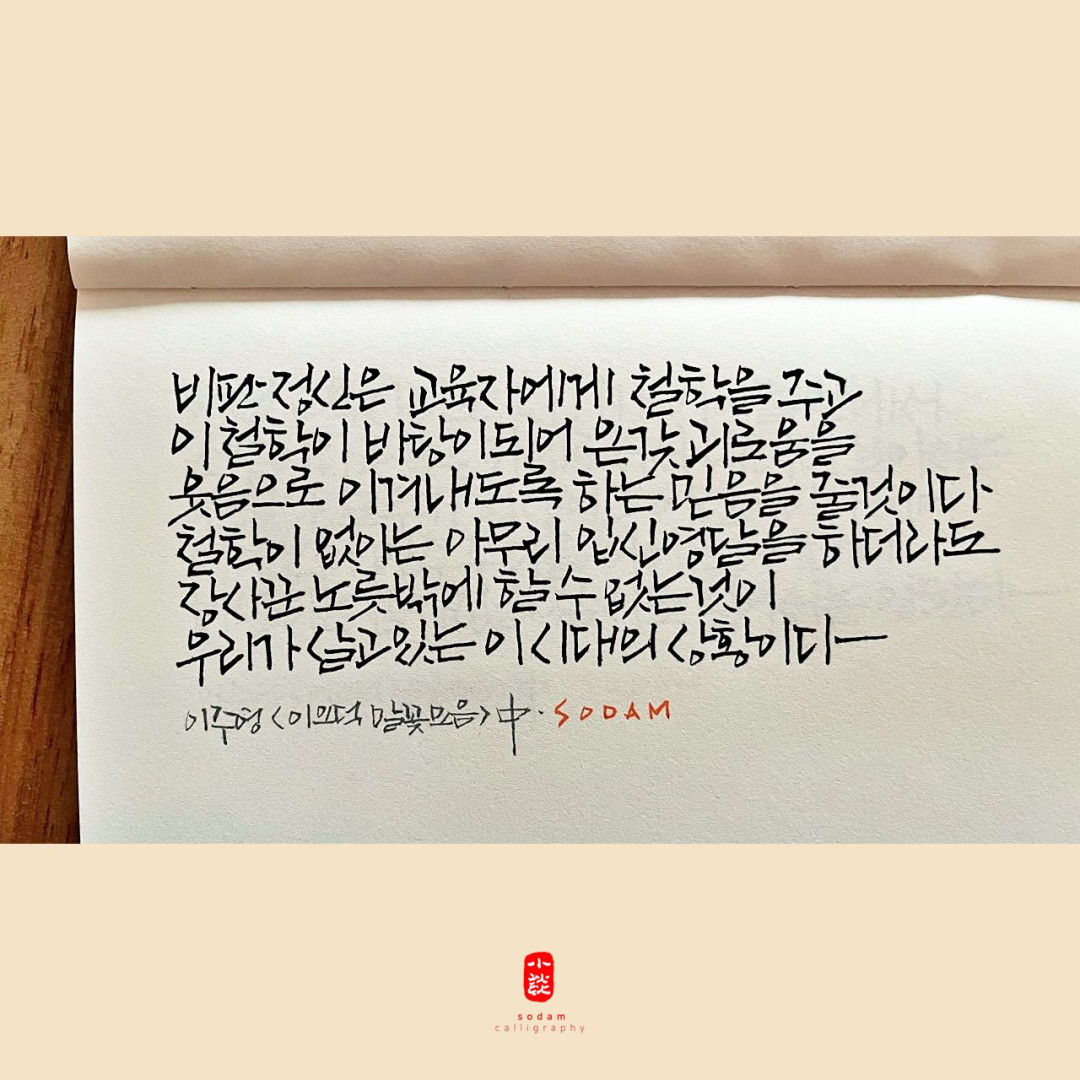 비판 정신은 교육자에게 철학을 주고
이 철학이 바탕이 되어 온갖 괴로움을
웃음으로 이겨내도록 하는 믿음을 줄것이다
철학이 없이는 아무리 입신영달을 하더라도
장사꾼 노릇밖에 할 수 없는것이
우리가 살고있는 이 시대의 상황이다
이주영 <이오덕 말꽃모음> 中. SODAM
小談
sodam
calligraphy